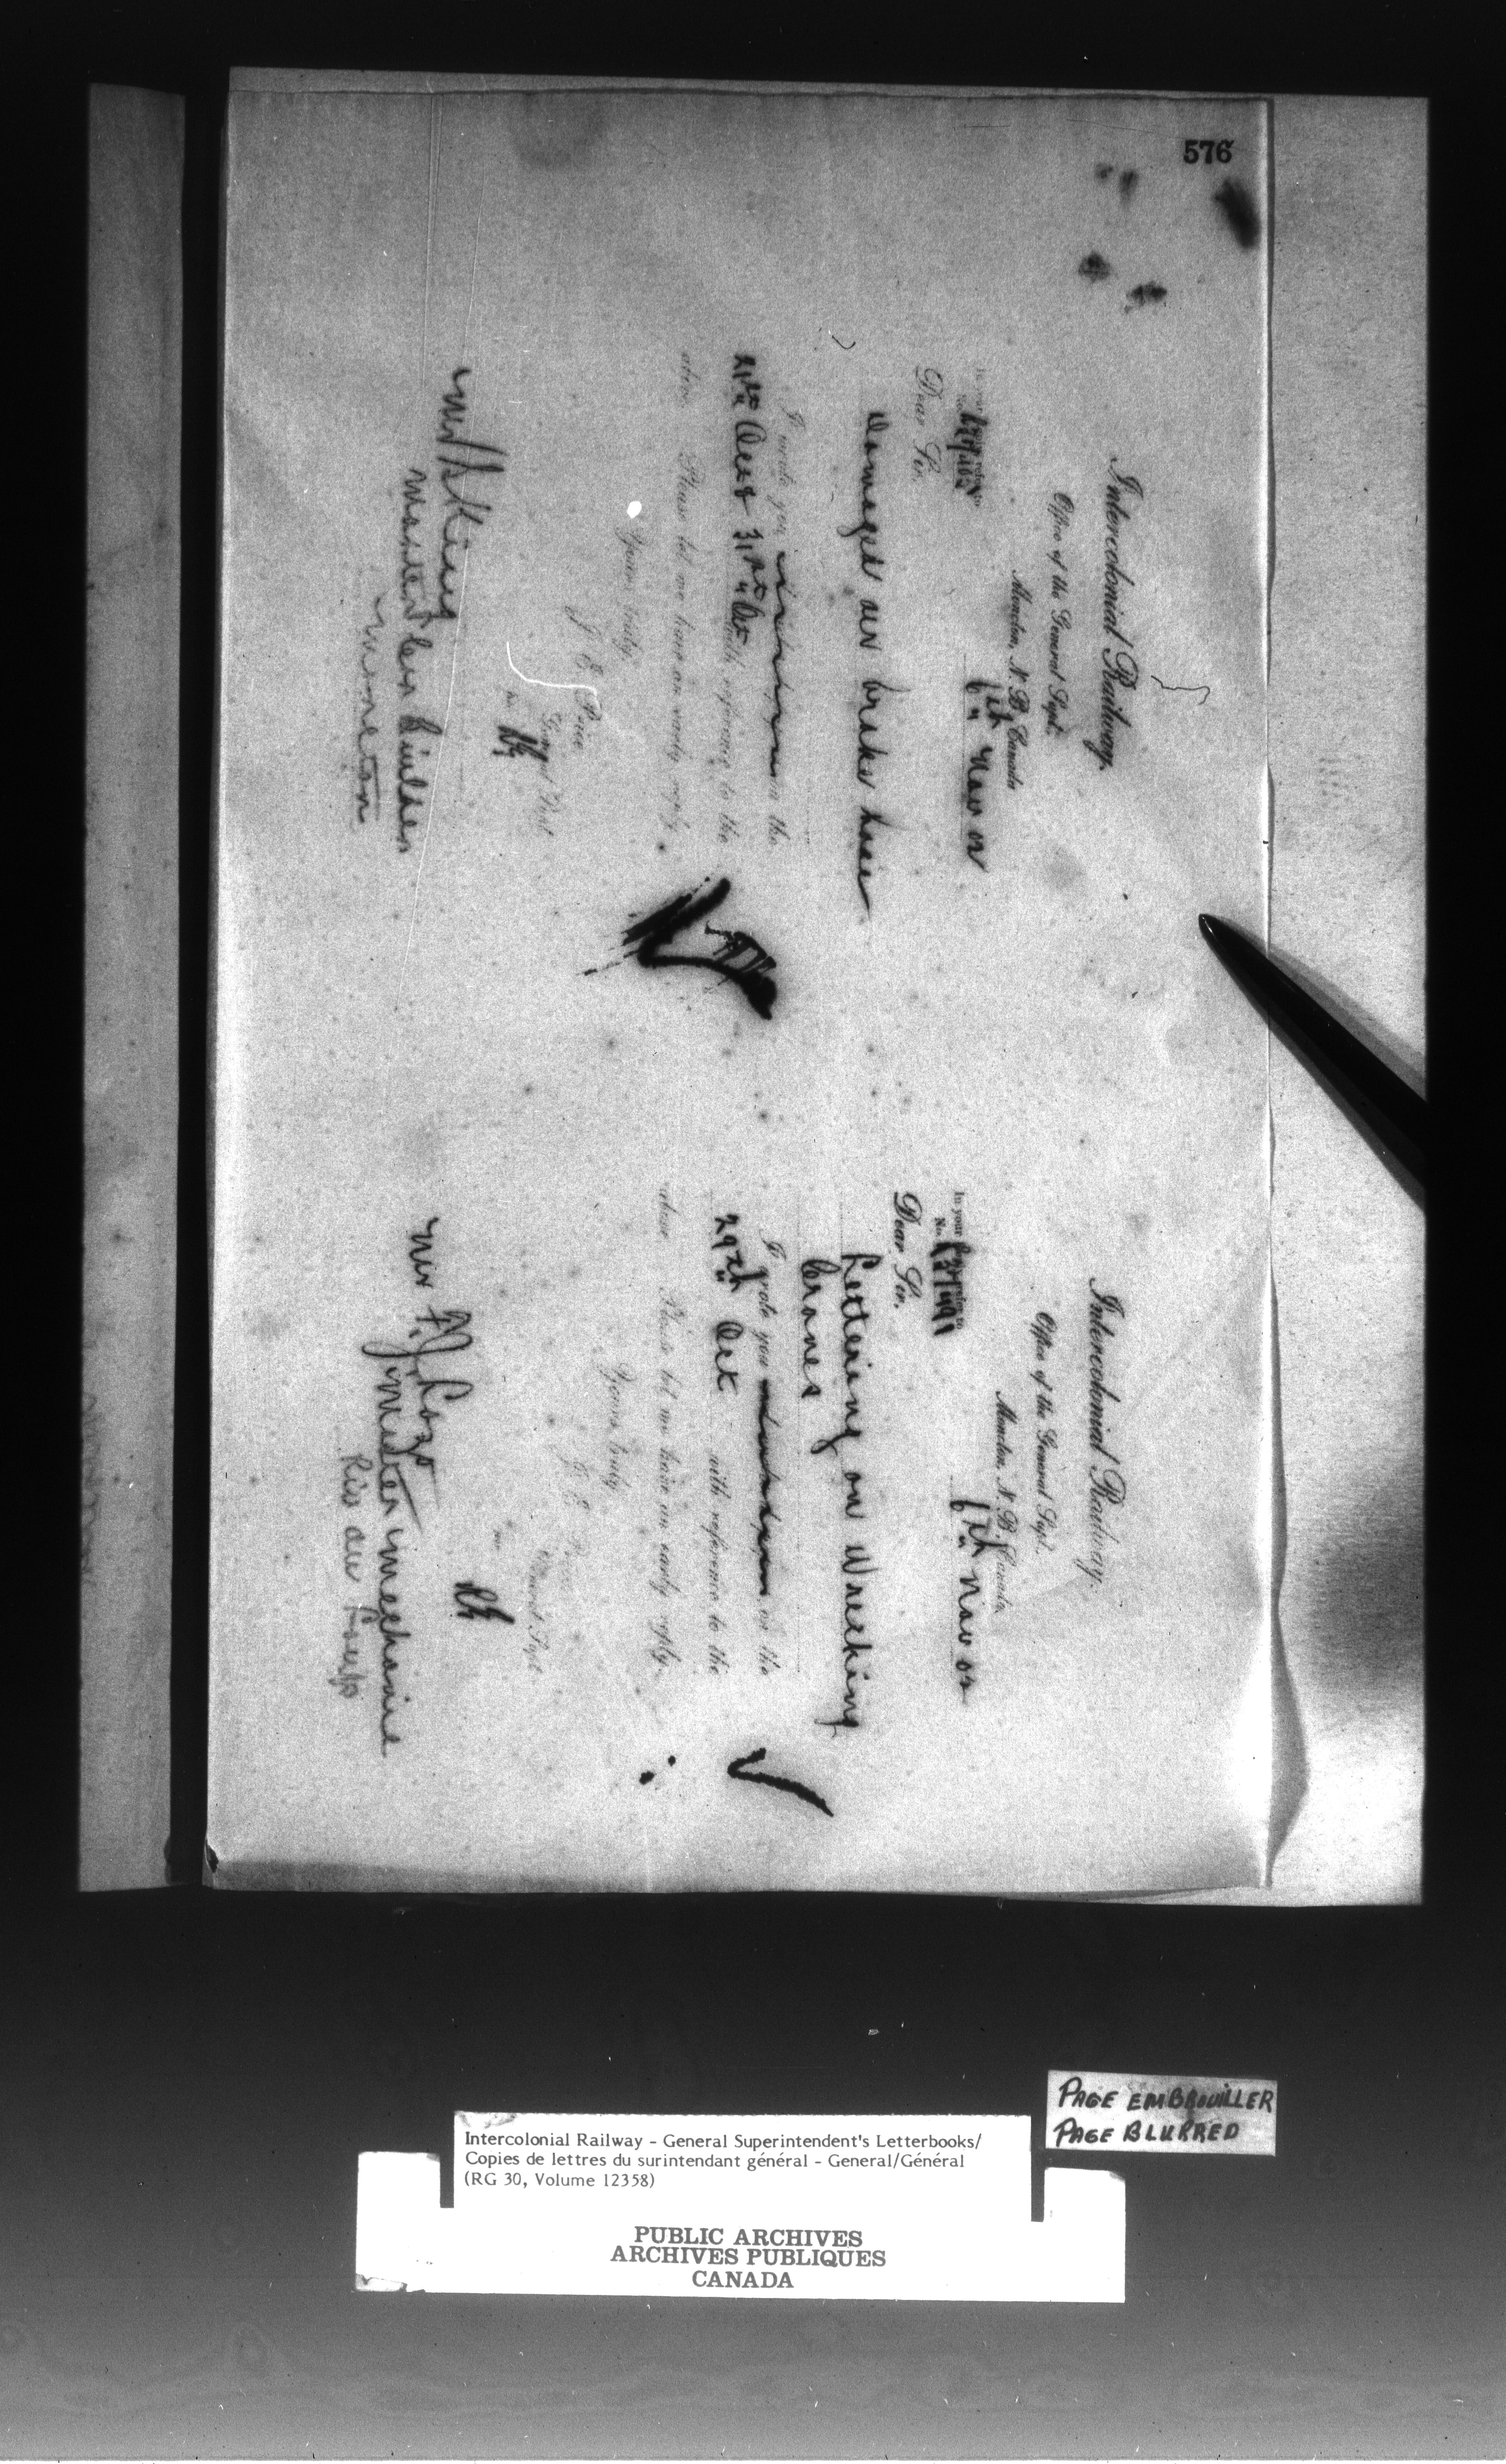 576
Intercolonial Railway.
Office of the General Supt.
Moncton, N. B. Canada
6th Nov 02
In your reply refer to
No.
Dear Sir,
Damaged air brake hose
I wrote you on the
21st Aug 31st Oct with reference to the
above. Please let me have an early reply.
Yours truly,
J. E. Price
General Supt.
Master Car Builder
Moncton
Intercolonial Railway.
Office of the General Supt.
Moncton, N. B. Canada
6th Nov 02
In your reply refer to
No.
Dear Sir,
Lettering on Wrecking
Cranes
I wrote you on the
29th Oct with reference to the
above. Please let me have an early reply.
Yours truly
J. E. Price
General Supt
Mr
Master mechanic
Riv du Loup
PAGE EMBROUILLER
PAGE BLURRED
Intercolonial Railway - General Superintendent's Letterbooks/
Copies de lettres du surintendant général - General/Général
(RG 30, Volume 12358)
PUBLIC ARCHIVES
ARCHIVES PUBLIQUES
CANADA